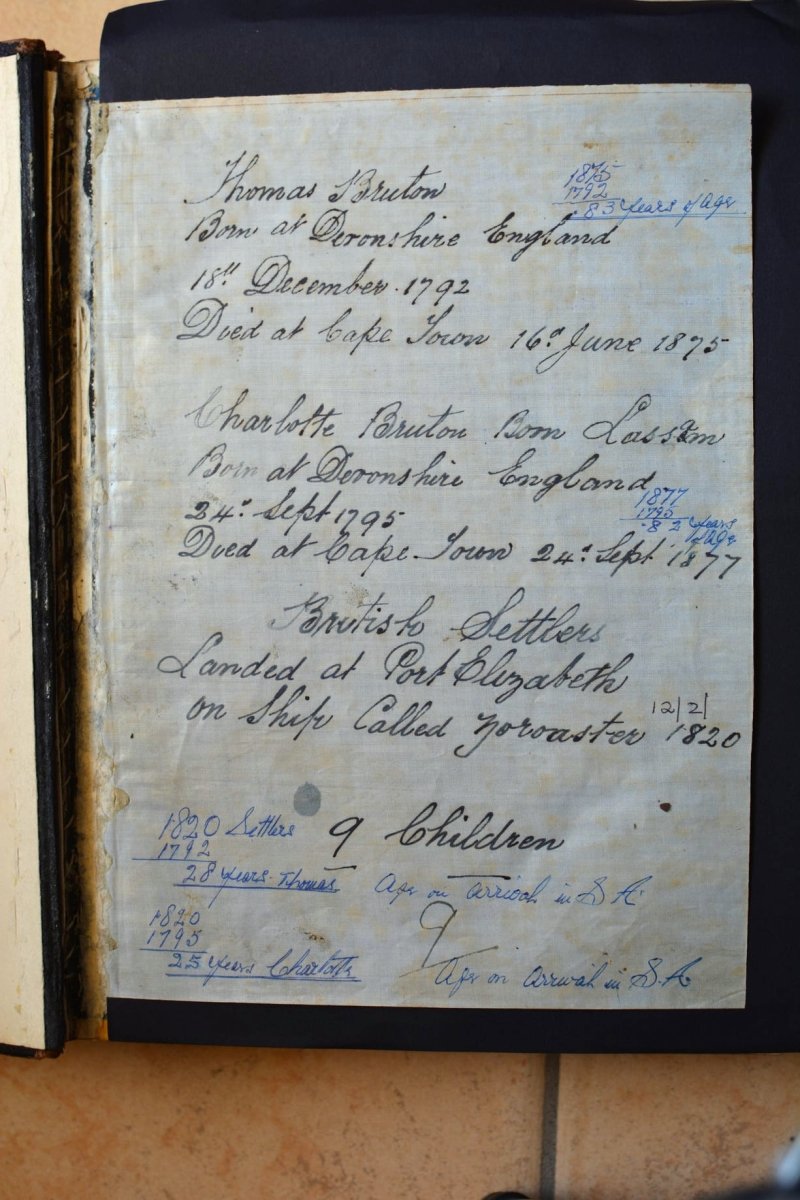 Thomas Bruton
1875
1792
83 years of Age
Born at Devonshire England
18th December 1792
Died at Cape Town 16th June 1875
Charlotte Bruton Born
Born at Devonshire England
1877
1795
82 years
of Age
24th Sept 1795
Died at Cape Town 24th Sept 1877
British Settlers
Landed at Port Elizabeth
12/2/
on Ship Called Zoroaster 1820
1820 Settlers
1792
28 years Thomas
9 Children
Age on arrival in S A.
1820
1795
25 years Charlotte
9
Age on arrival in S. A